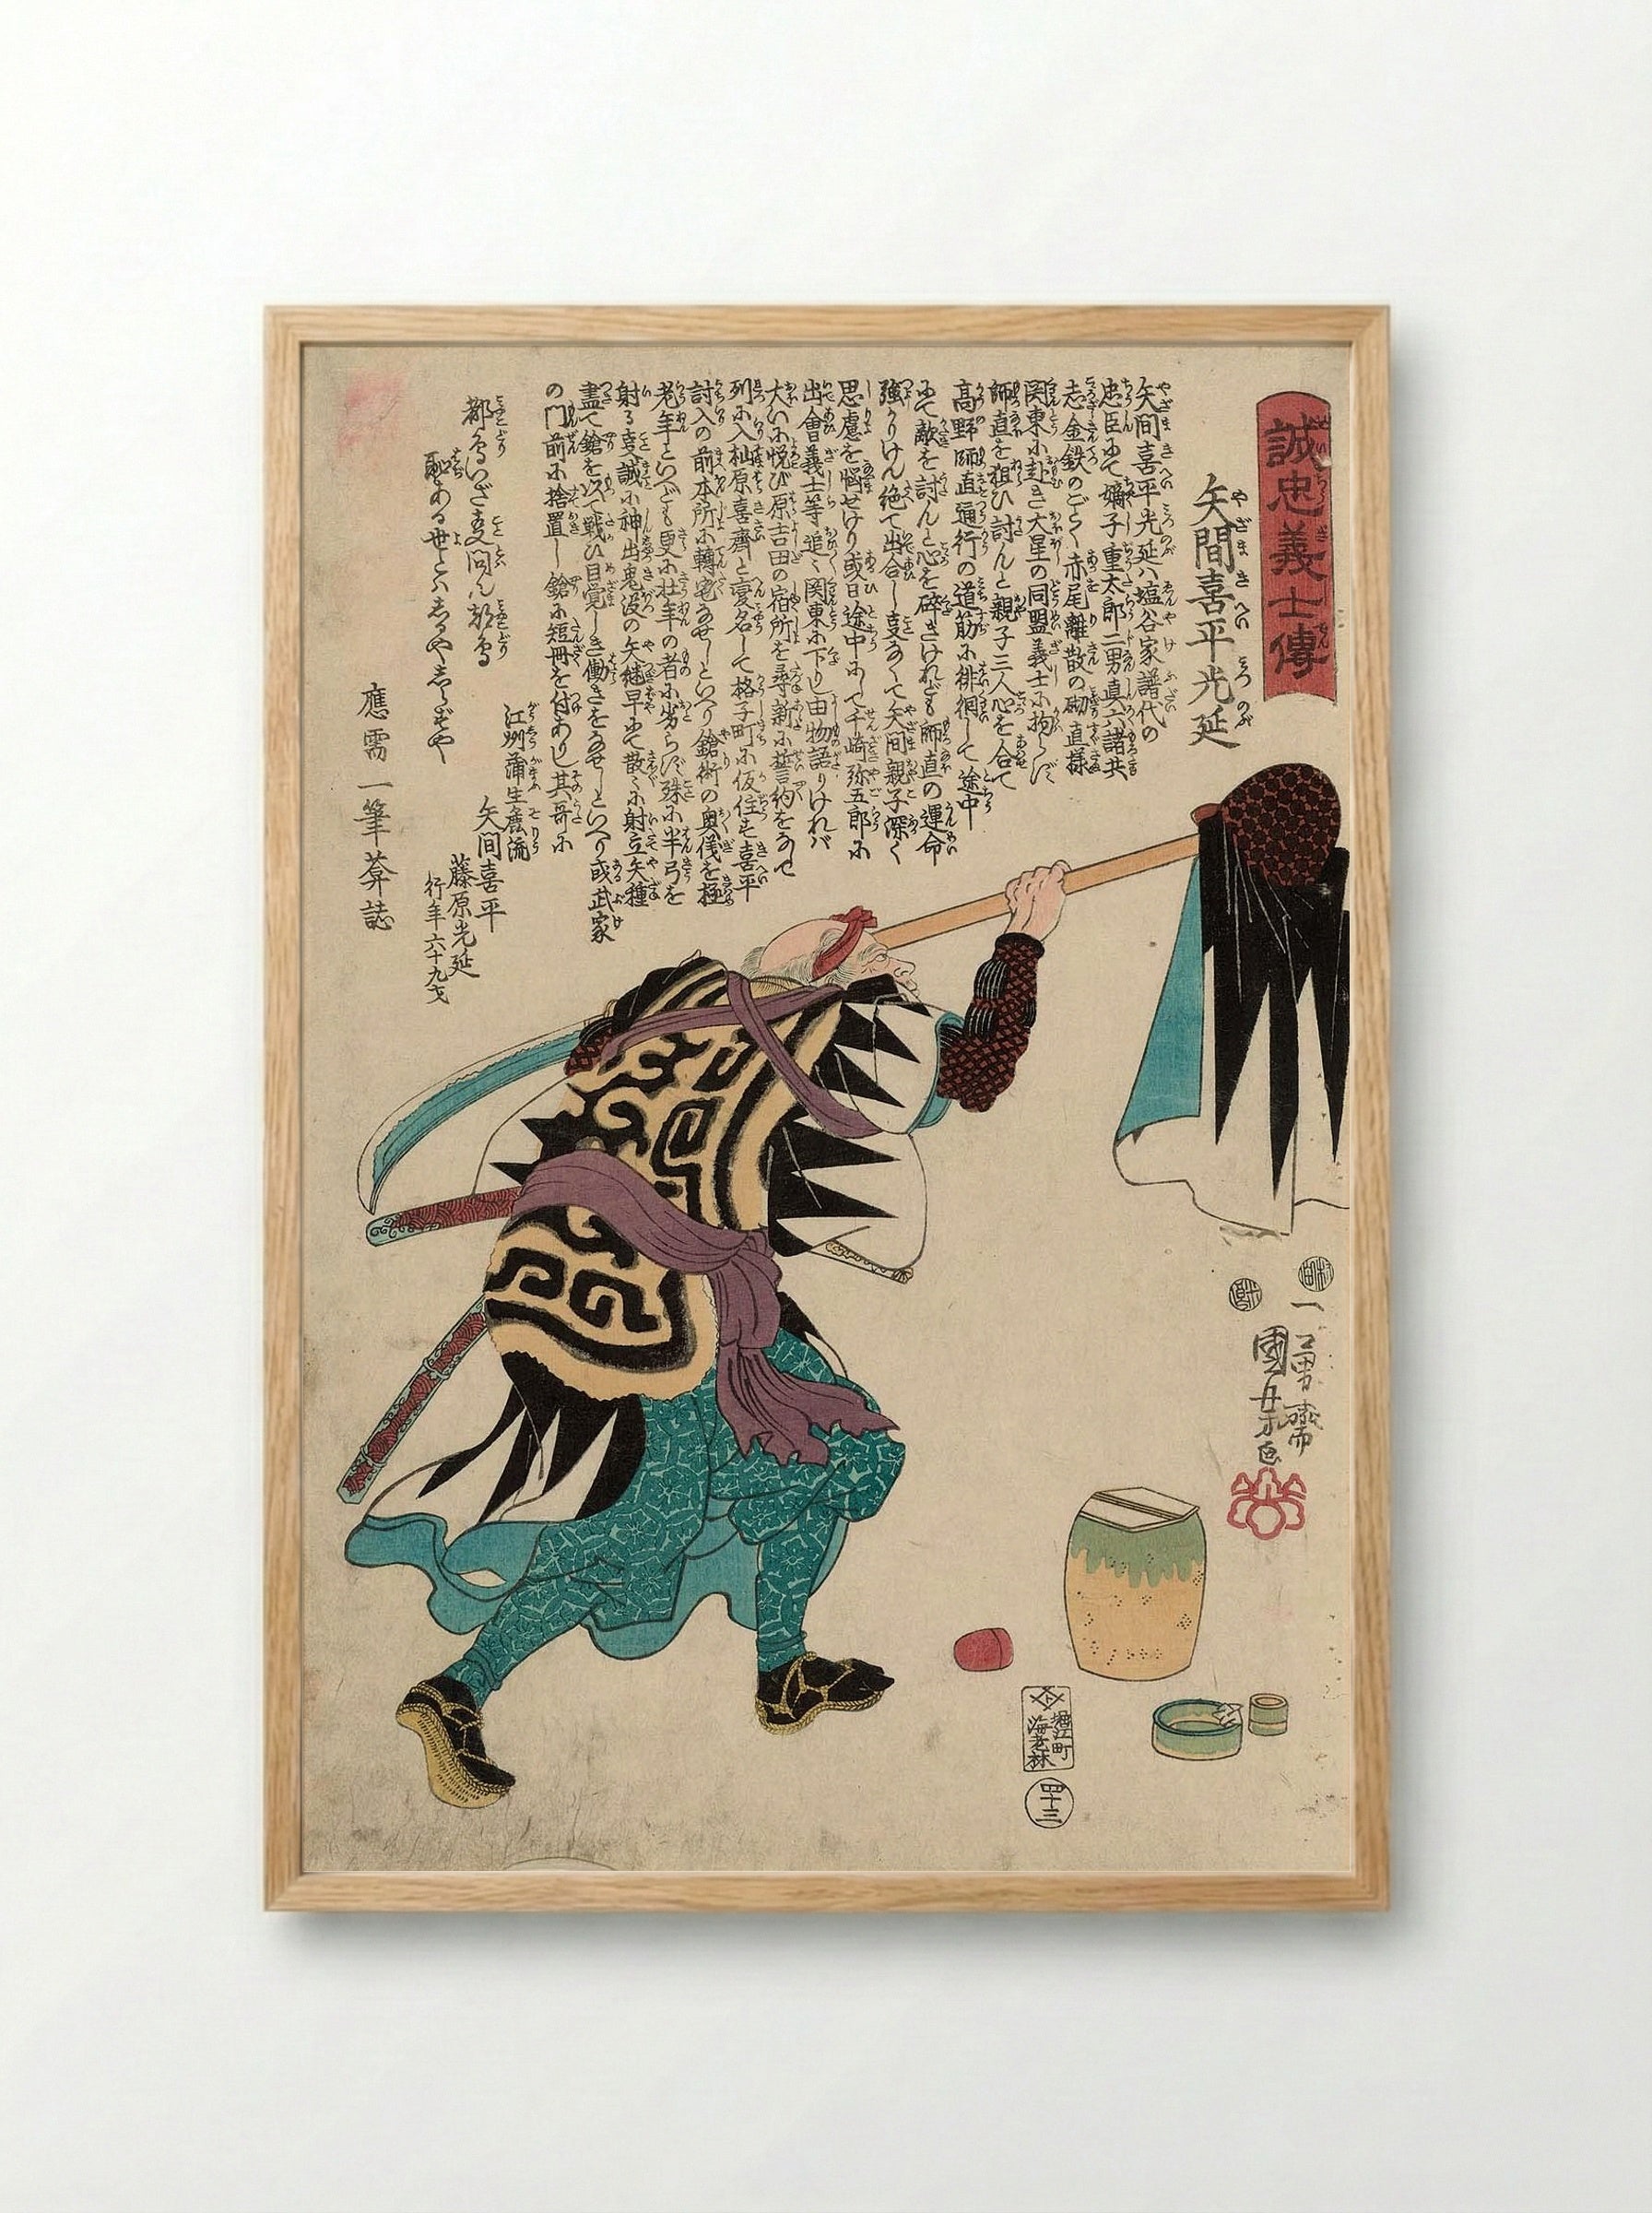 誠忠義士傳
矢間喜平光延
矢間喜平光延ハ塩谷家譜代の
忠臣にて嫡子重太郎二男真六諸共
志金鉄のごとく赤尾離散の砌直様
関東に赴き大星の同盟義士に拘らず
師直を狙ひ討んと親子三人心を合て
高野師直通行の道筋に徘徊して途中
にて敵を討んと心を碎きけれども師直の運命
強かりけん絶て出合し支なくて矢間親子深く
思慮を悩せけり或日途中にて千崎弥五郎に
出會義士等追々関東に下りし由物語りけれバ
大いに悦び原吉田の宿所を尋新に誓約をなして
列に入杣原喜齋と変名して格子町に仮住す喜平
討入の前本所に轉宅なせしといへり鎗術の奥儀を極
老年といへども更に壮年の者に劣らず殊に半弓を
射る支誠に神出鬼没の矢継早にて散々に射立矢種
盡て鎗を以て戦ひ目覚しき働きをなせしといへり或武家
の門前に捨置し鎗に短冊を付ありし其哥に
都鳥いざ支問ん都鳥
恥ある世とハしるやしらずや
江州蒲生産流
矢間喜平
藤原光延
行年六十九才
應需一筆葊誌
一勇齋
國芳画
村田
堀江町
海老林
四十三